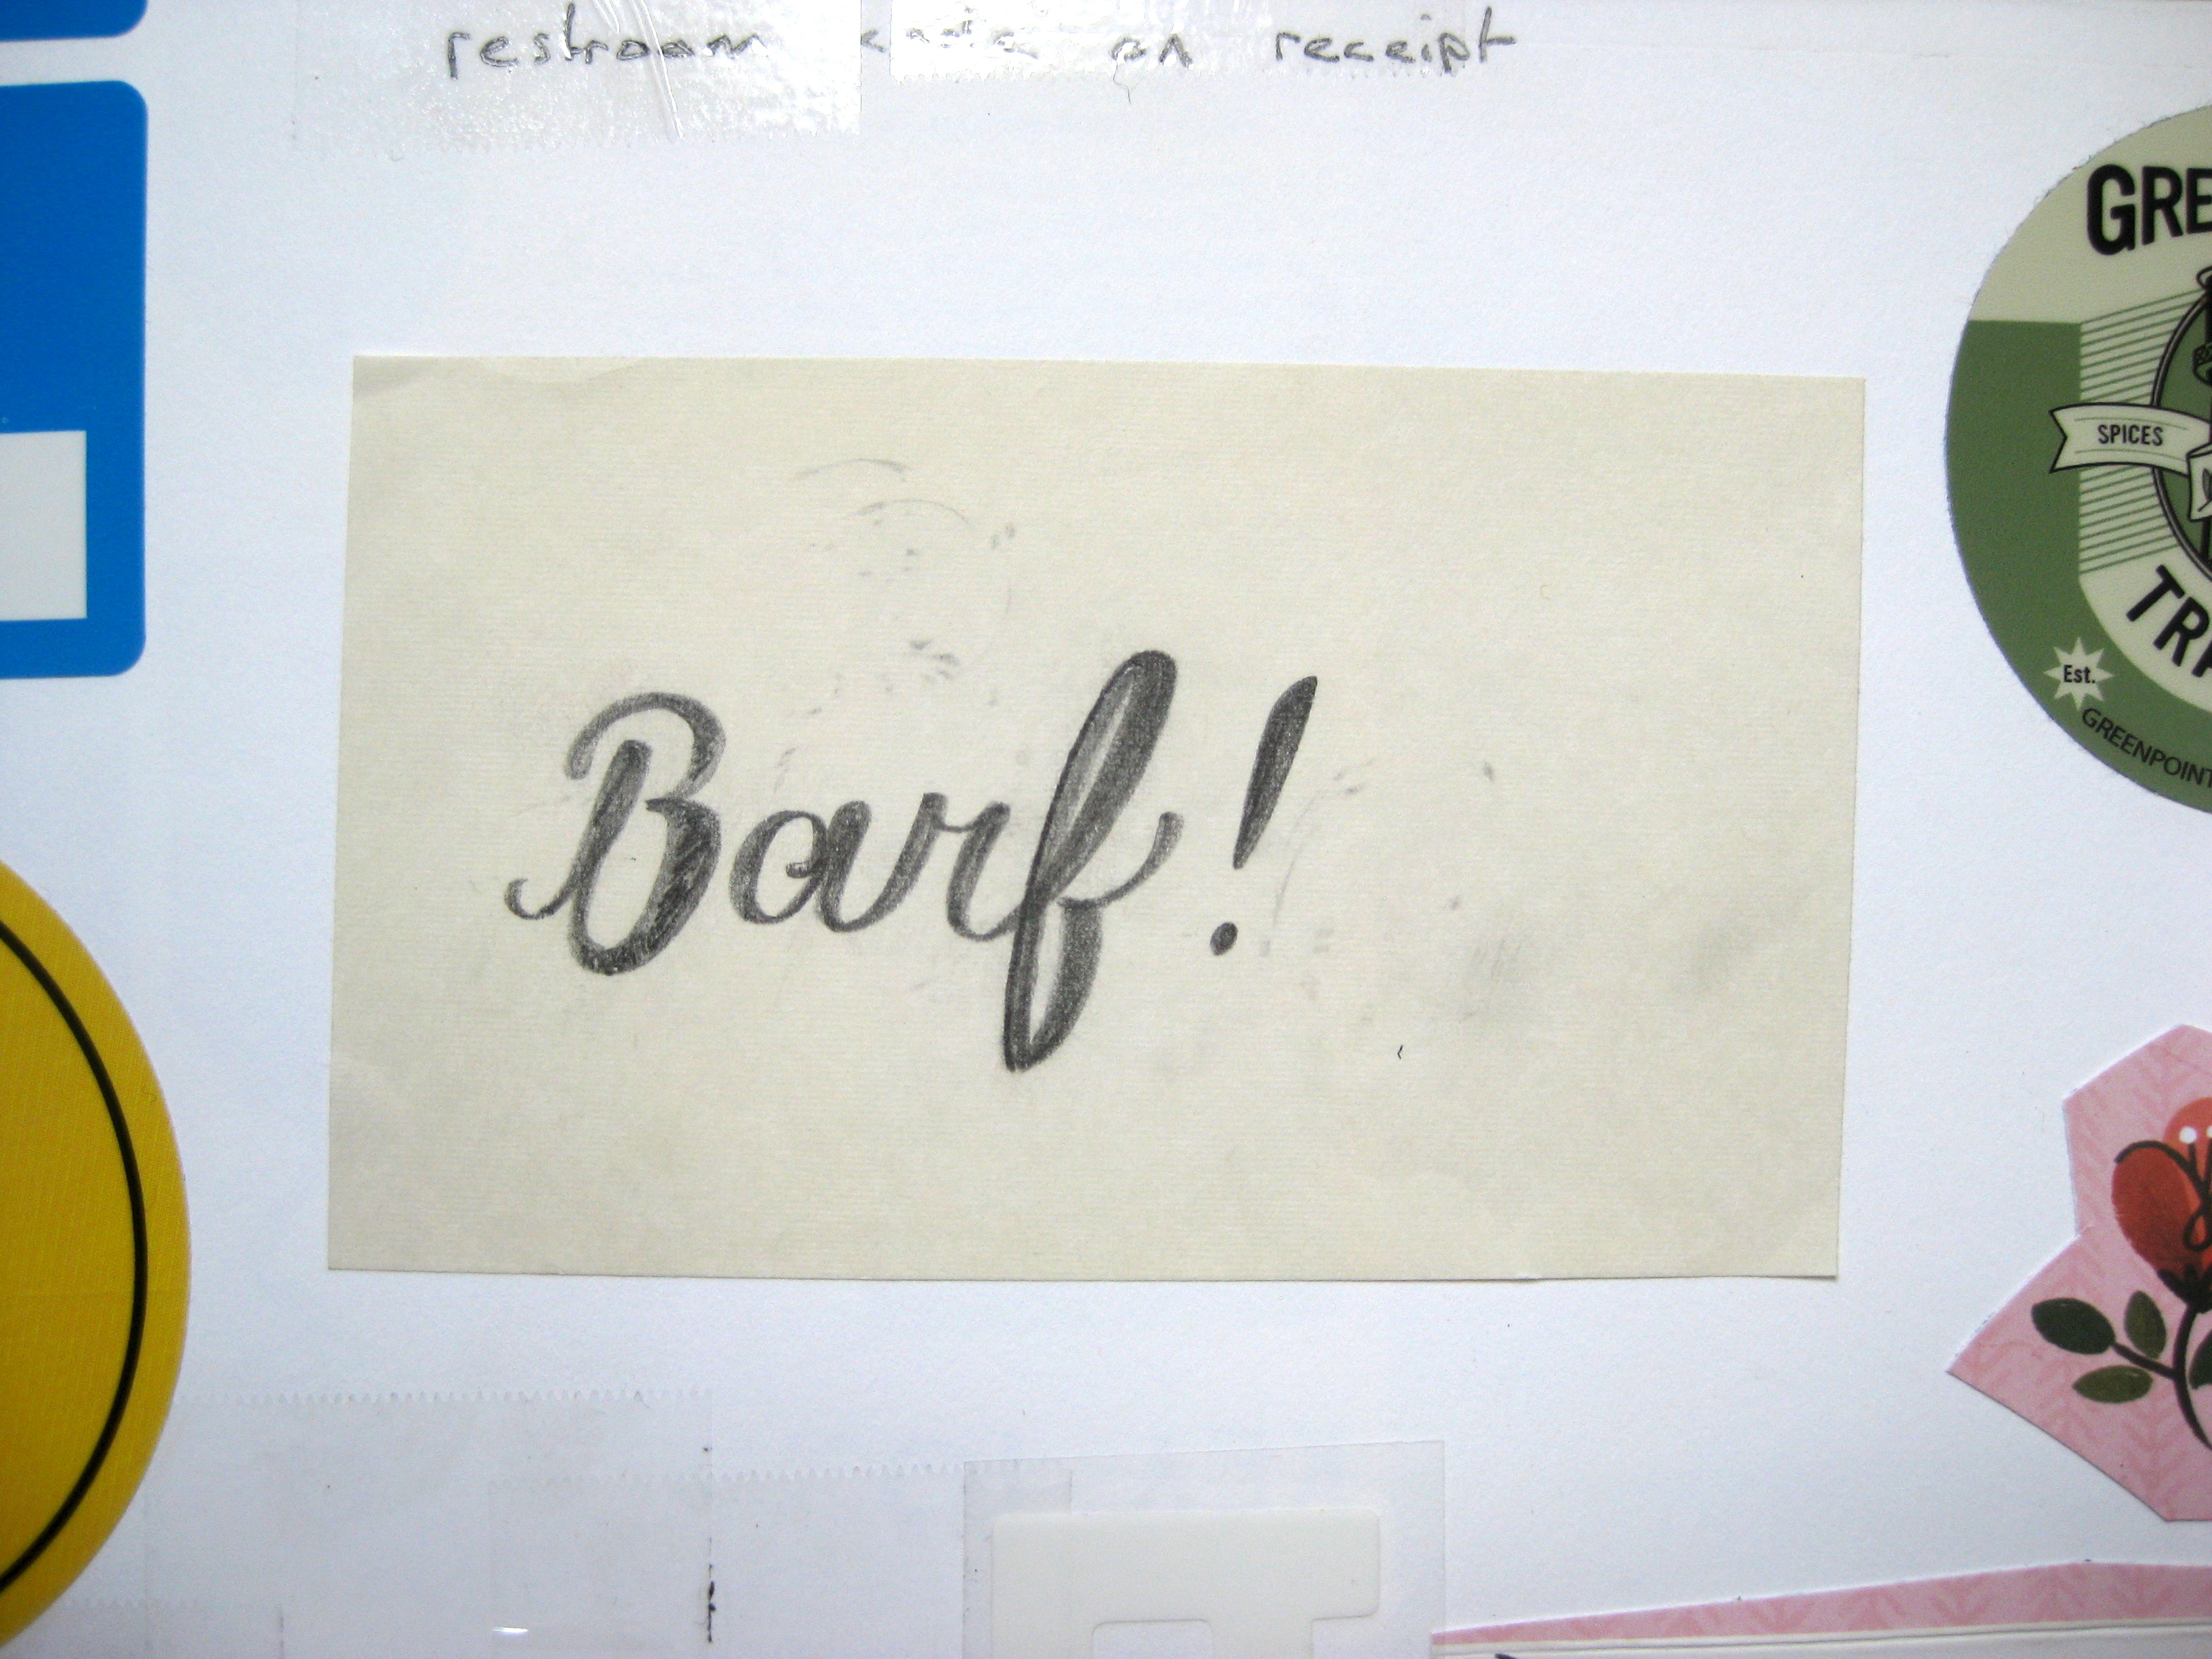 restroom code on receipt
GRE
SPICES
Barf!
TRA
Est.
GREENPOINT